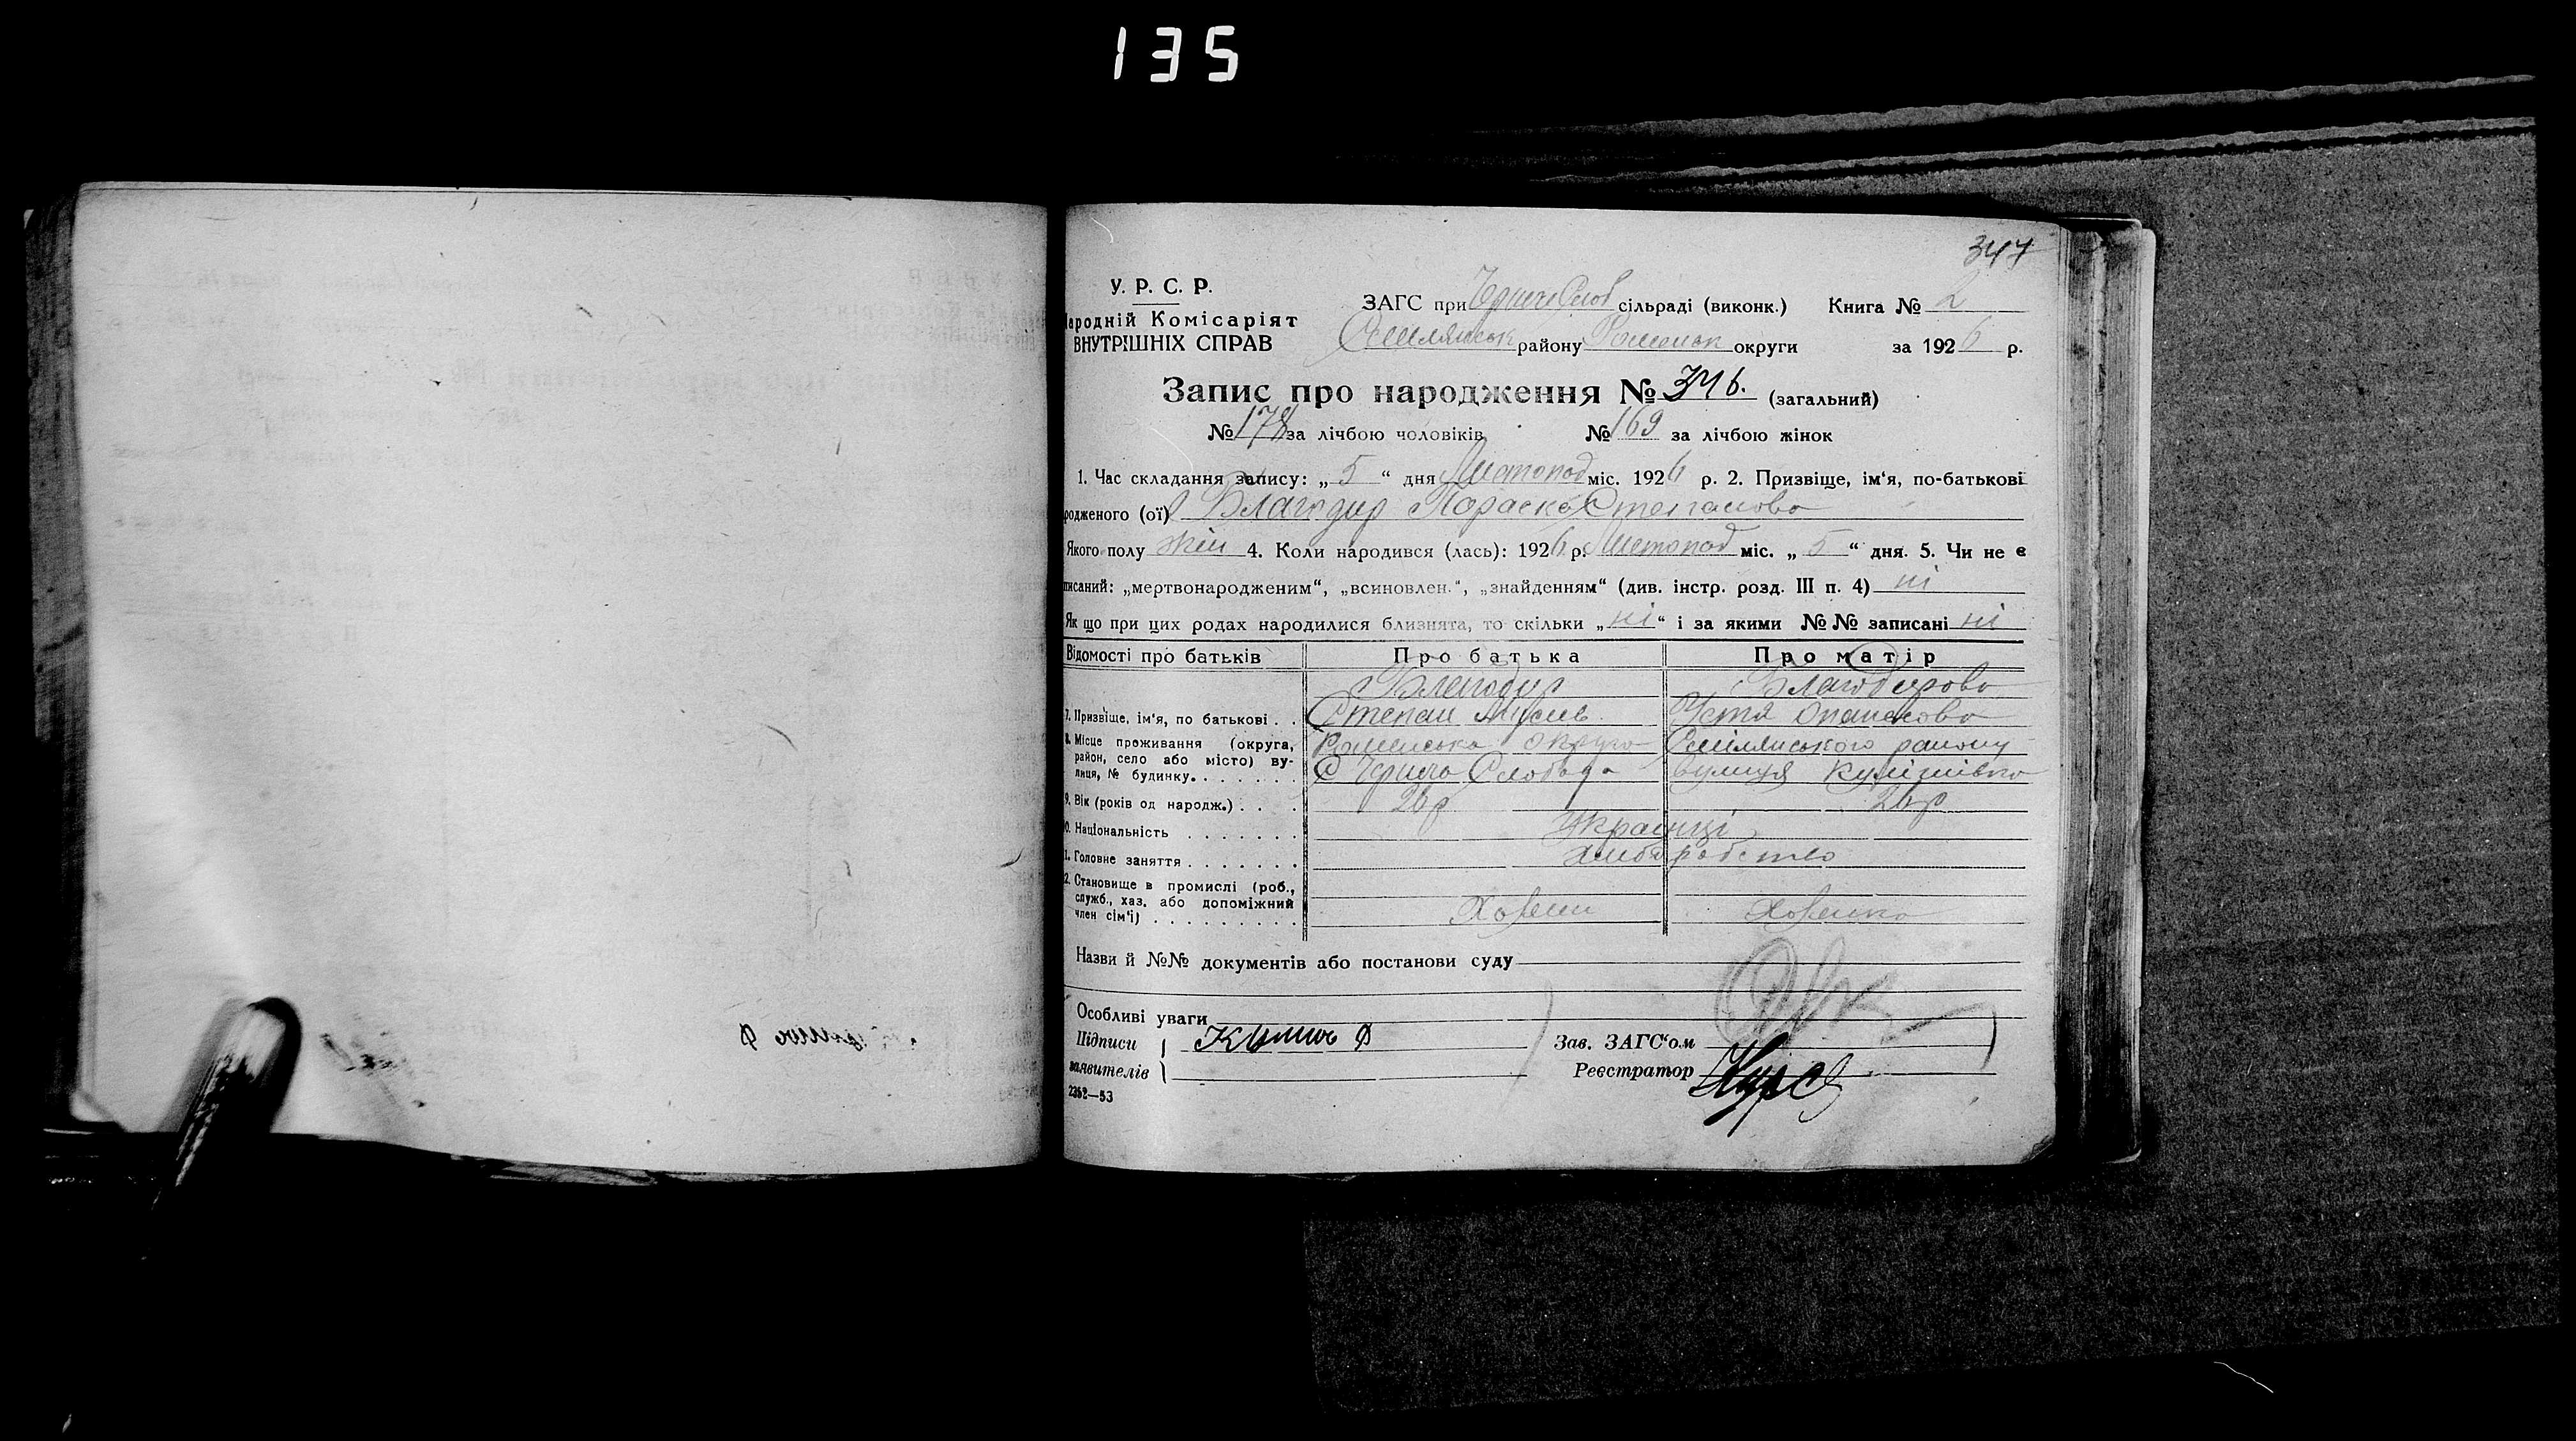 135
347
У. Р. С. Р.
ародній Комісаріят
ВНУТРІШНІХ СПРАВ
ЗАГС при сільраді (виконк.) Книга № 2
району округи за 1926 р.
Запис про народження № 346. (загальний)
№ 178 за лічбою чоловіків № 169 за лічбою жінок
1. Час складання запису: „ 5 “ дня Листопад міс. 1926 р. 2. Призвіще, ім‘я, по-батькові
родженого (ої) Благодир Параска Степанова
Якого полу жін 4. Коли народився (лась): 1926 р. Листопад міс. „ 5 “ дня. 5. Чи не є
писаний: „мертвонародженим“, „всиновлен.“, „знайденням“ (див. інстр. розд. III п. 4) ні
Як що при цих родах народилися близнята, то скільки „ ні “ і за якими №№ записані ні
Відомості про батьків Про батька Про матір
Благодир Благодирова
7. Призвіще, ім‘я, по батькові . . Степан Мусіев Устя Опанасова
8. Місце проживання (округа, район, село або місто) вулиця, № будинку. Роменська округа Смілянського району
С Черича Слобода вулиця
9. Вік (років од народж.) . . . 26 р 26 р
0. Національність . . . . . . . Українці
1. Головне заняття . . . . . . . хліборобство
2. Становище в промислі (роб.,
служб., хаз. або допоміжний
член сім‘ї) . . . . . . . . . Хозяин Хозяйка
Назви й №№ документів або постанови суду
Особливі уваги
Підписи Зав. ЗАГС‘ом
заявителів Реєстратор
2352—53